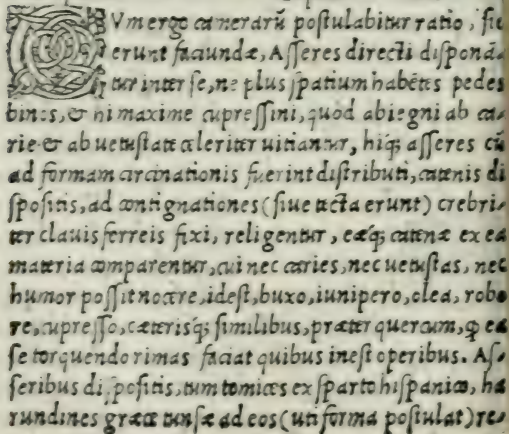 CVm ergo camerarũ postulabitur ratio, sic
erunt faciundæ, Asseres directi disponã
tur inter se, ne plus spatium habẽtes pedes
binos, & hi maxime cupressini, quod abiegni ab ca-
rie & ab uetustate celeriter uitiantur, hiq; asseres cũ
ad formam circinationis fuerint distributi, catenis di
spositis, ad contignationes (siue tecta erunt) crebri-
ter clauis ferreis fixi, religentur, eæq; catenæ ex ea
materia comparentur, cui nec caries, nec uetustas, nec
humor possit nocere, idest, buxo, iunipero, olea, robo
re, cupresso, cæterisq; similibus, præter quercum, ꝙ ea
se torquendo rimas faciat quibus inest operibus. As-
seribus dispositis, tum tomices ex sparto hispanico, ha
rundines græcæ tunsæ ad eos (uti forma postulat) re-